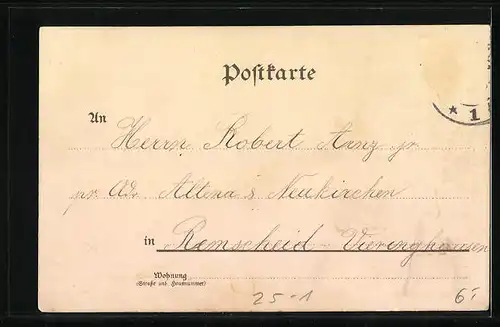 Postkarte
* 1
An Herrn Robert Arnz jr
pr. Adr Altena & Neukirchen
in Remscheid-Vieringhausen
Wohnung
(Straße und Hausnummer)
25-1 6.-